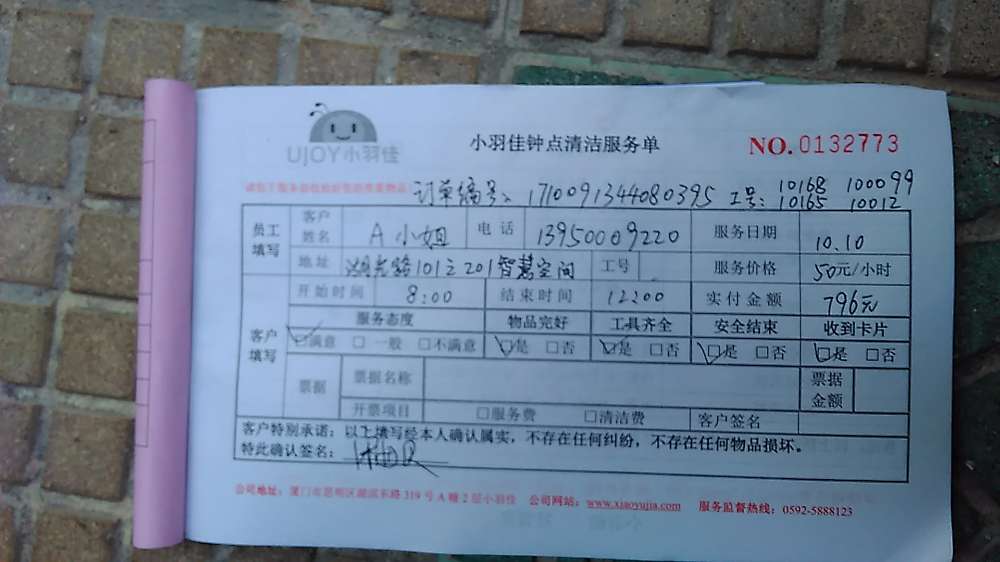 UJOY小羽佳
小羽佳钟点清洁服务单
NO.0132773
订单编号:1710091344080395 工号: 10168 100099
10165 10012
员工填写 客户姓名 A小姐 电话 13950009220 服务日期 10.10
地址 湖光路101之201智慧空间 工号 服务价格 50元/小时
开始时间 8:00 结束时间 12:00 实付金额 796元
客户填写 服务态度 物品完好 工具齐全 安全结束 收到卡片
☑满意 □一般 □不满意 ☑是 □否 ☑是 □否 ☑是 □否 ☑是 □否
票据 票据名称 票据金额
开票项目 □服务费 □清洁费 客户签名
客户特别承诺:以上填写经本人确认属实,不存在任何纠纷,不存在任何物品损坏。
特此确认签名:
公司地址:厦门市思明区湖滨东路319号A幢2层小羽佳 公司网站:www.xiaoyujia.com 服务监督热线:0592-5888123